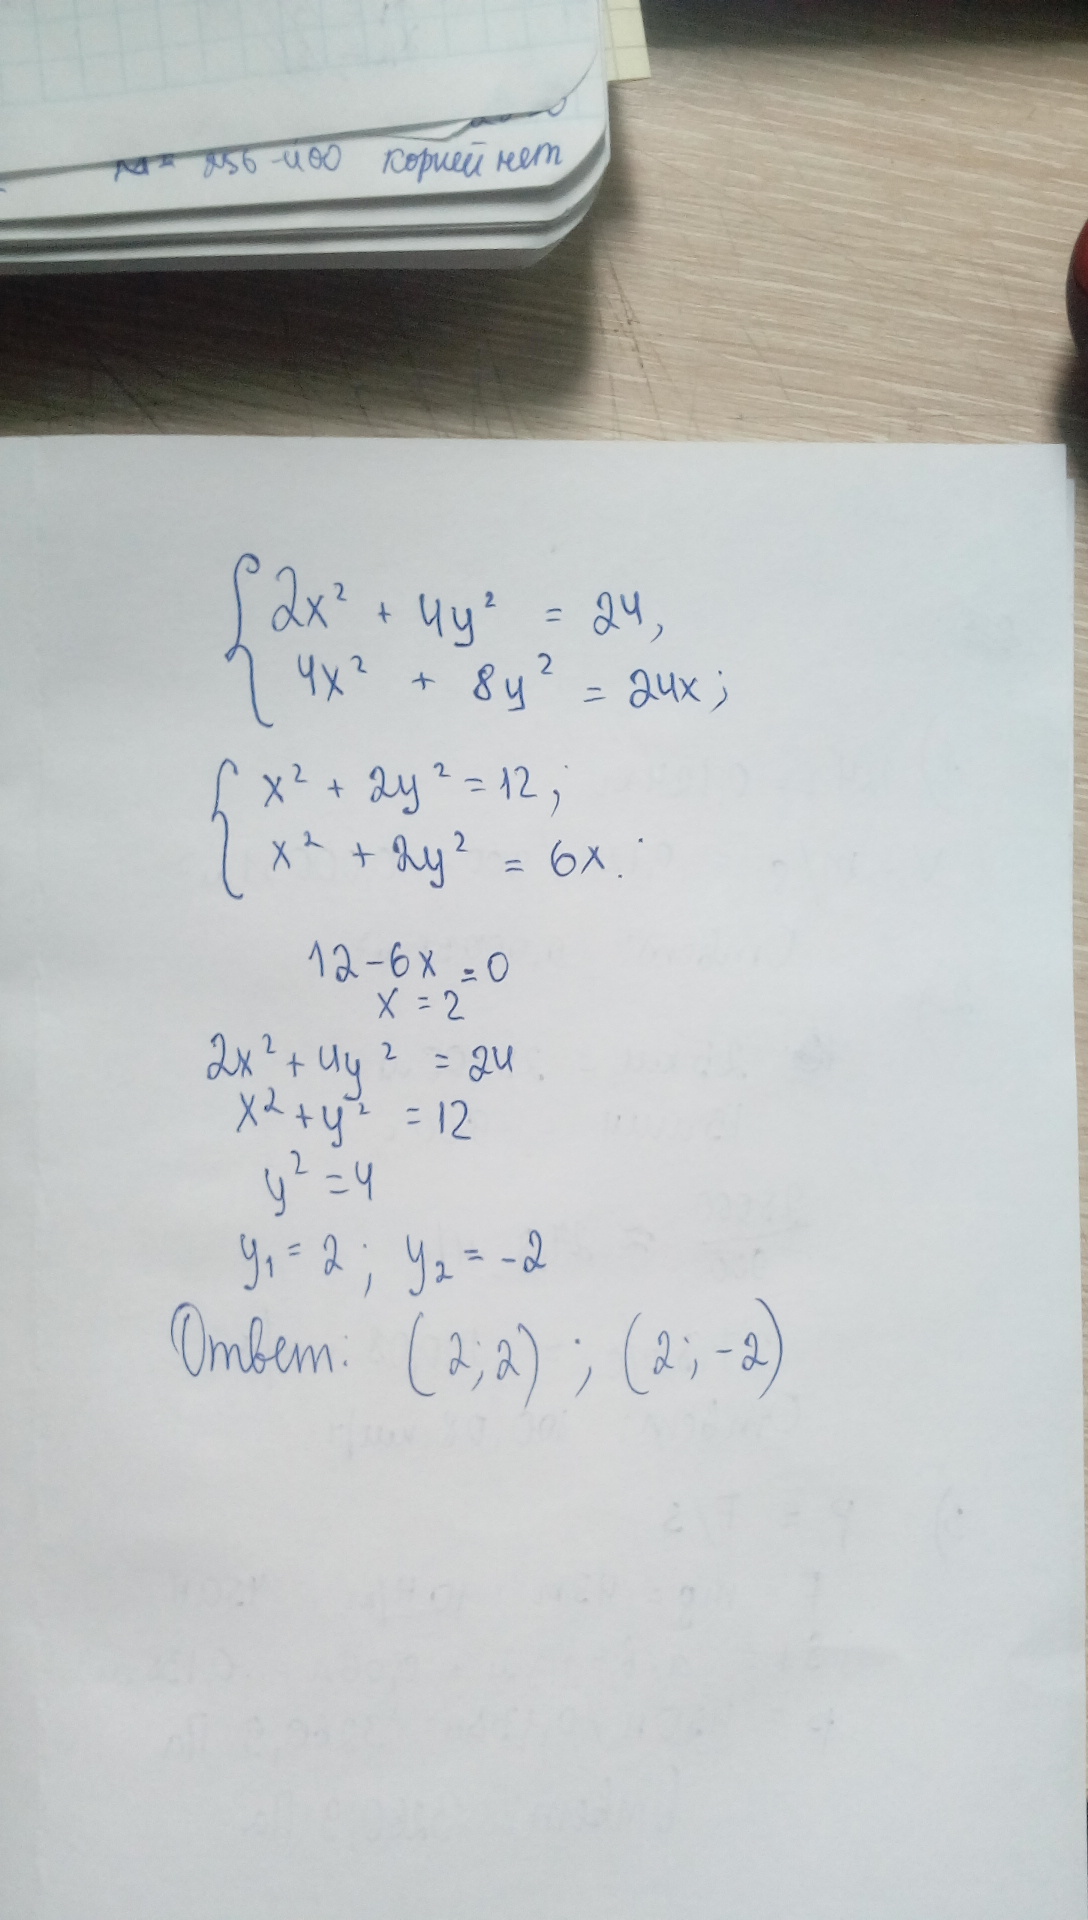 = 256-400 корней нет
{2x² + 4y² = 24,
4x² + 8y² = 24x;
{x² + 2y² = 12;
x² + 2y² = 6x.
12-6x = 0
x = 2
2x² + 4y² = 24
x² + y² = 12
y² = 4
y₁ = 2; y₂ = -2
Ответ: (2;2); (2;-2)